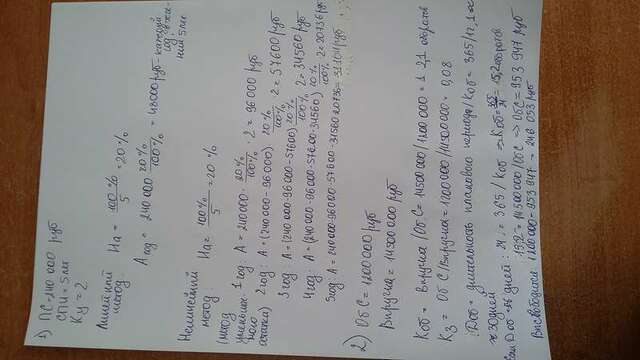 1) ПС=240 000 руб
СПИ=5 лет
Ку=2
Линейный метод:
На = 100%/5 = 20%
Агод = 240 000 · 20%/100% = 48000 руб - каждый год в
ний 5 лет
Нелинейный метод:
На = 100%/5 = 20%
(метод
остатка)
1 год: А = 240000 · 20%/100% · 2 = 96000 руб
2 год: А = (240 000-96 000) 20%/100% · 2 = 57600 руб
3 год: А = (240 000-96 000-57600) 20%/100% · 2 = 34560 руб
4 год: А = (240 000-96 000-57600-34560) 20%/100% · 2 = 20736 руб
5 год: А = 240 000-96 000-57 600-34560-20736 = 31104 руб
2) ОбС = 1200 000 руб
Выручка = 14500 000 руб
Коб = выручка / ОбС = 14500 000 / 1200 000 = 12,1 оборотов
Кз = ОбС/Выручка = 1200 000 / 14500 000 = 0,08
Доб = длительность планового периода / Коб = 365/12,1 =
= 30 дней
Доб = 24 дней: 24 = 365 / Коб => Коб = 365/24 = 15,2 оборотов
15,2 = 14500 000 / ОбС => ОбС = 953 947 руб
Высвободится: 1200 000 - 953 947 = 246 053 руб